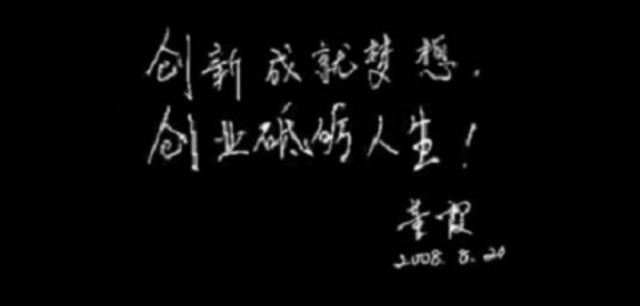 创新成就梦想.
创业砥砺人生!
董霞
2008.8.20